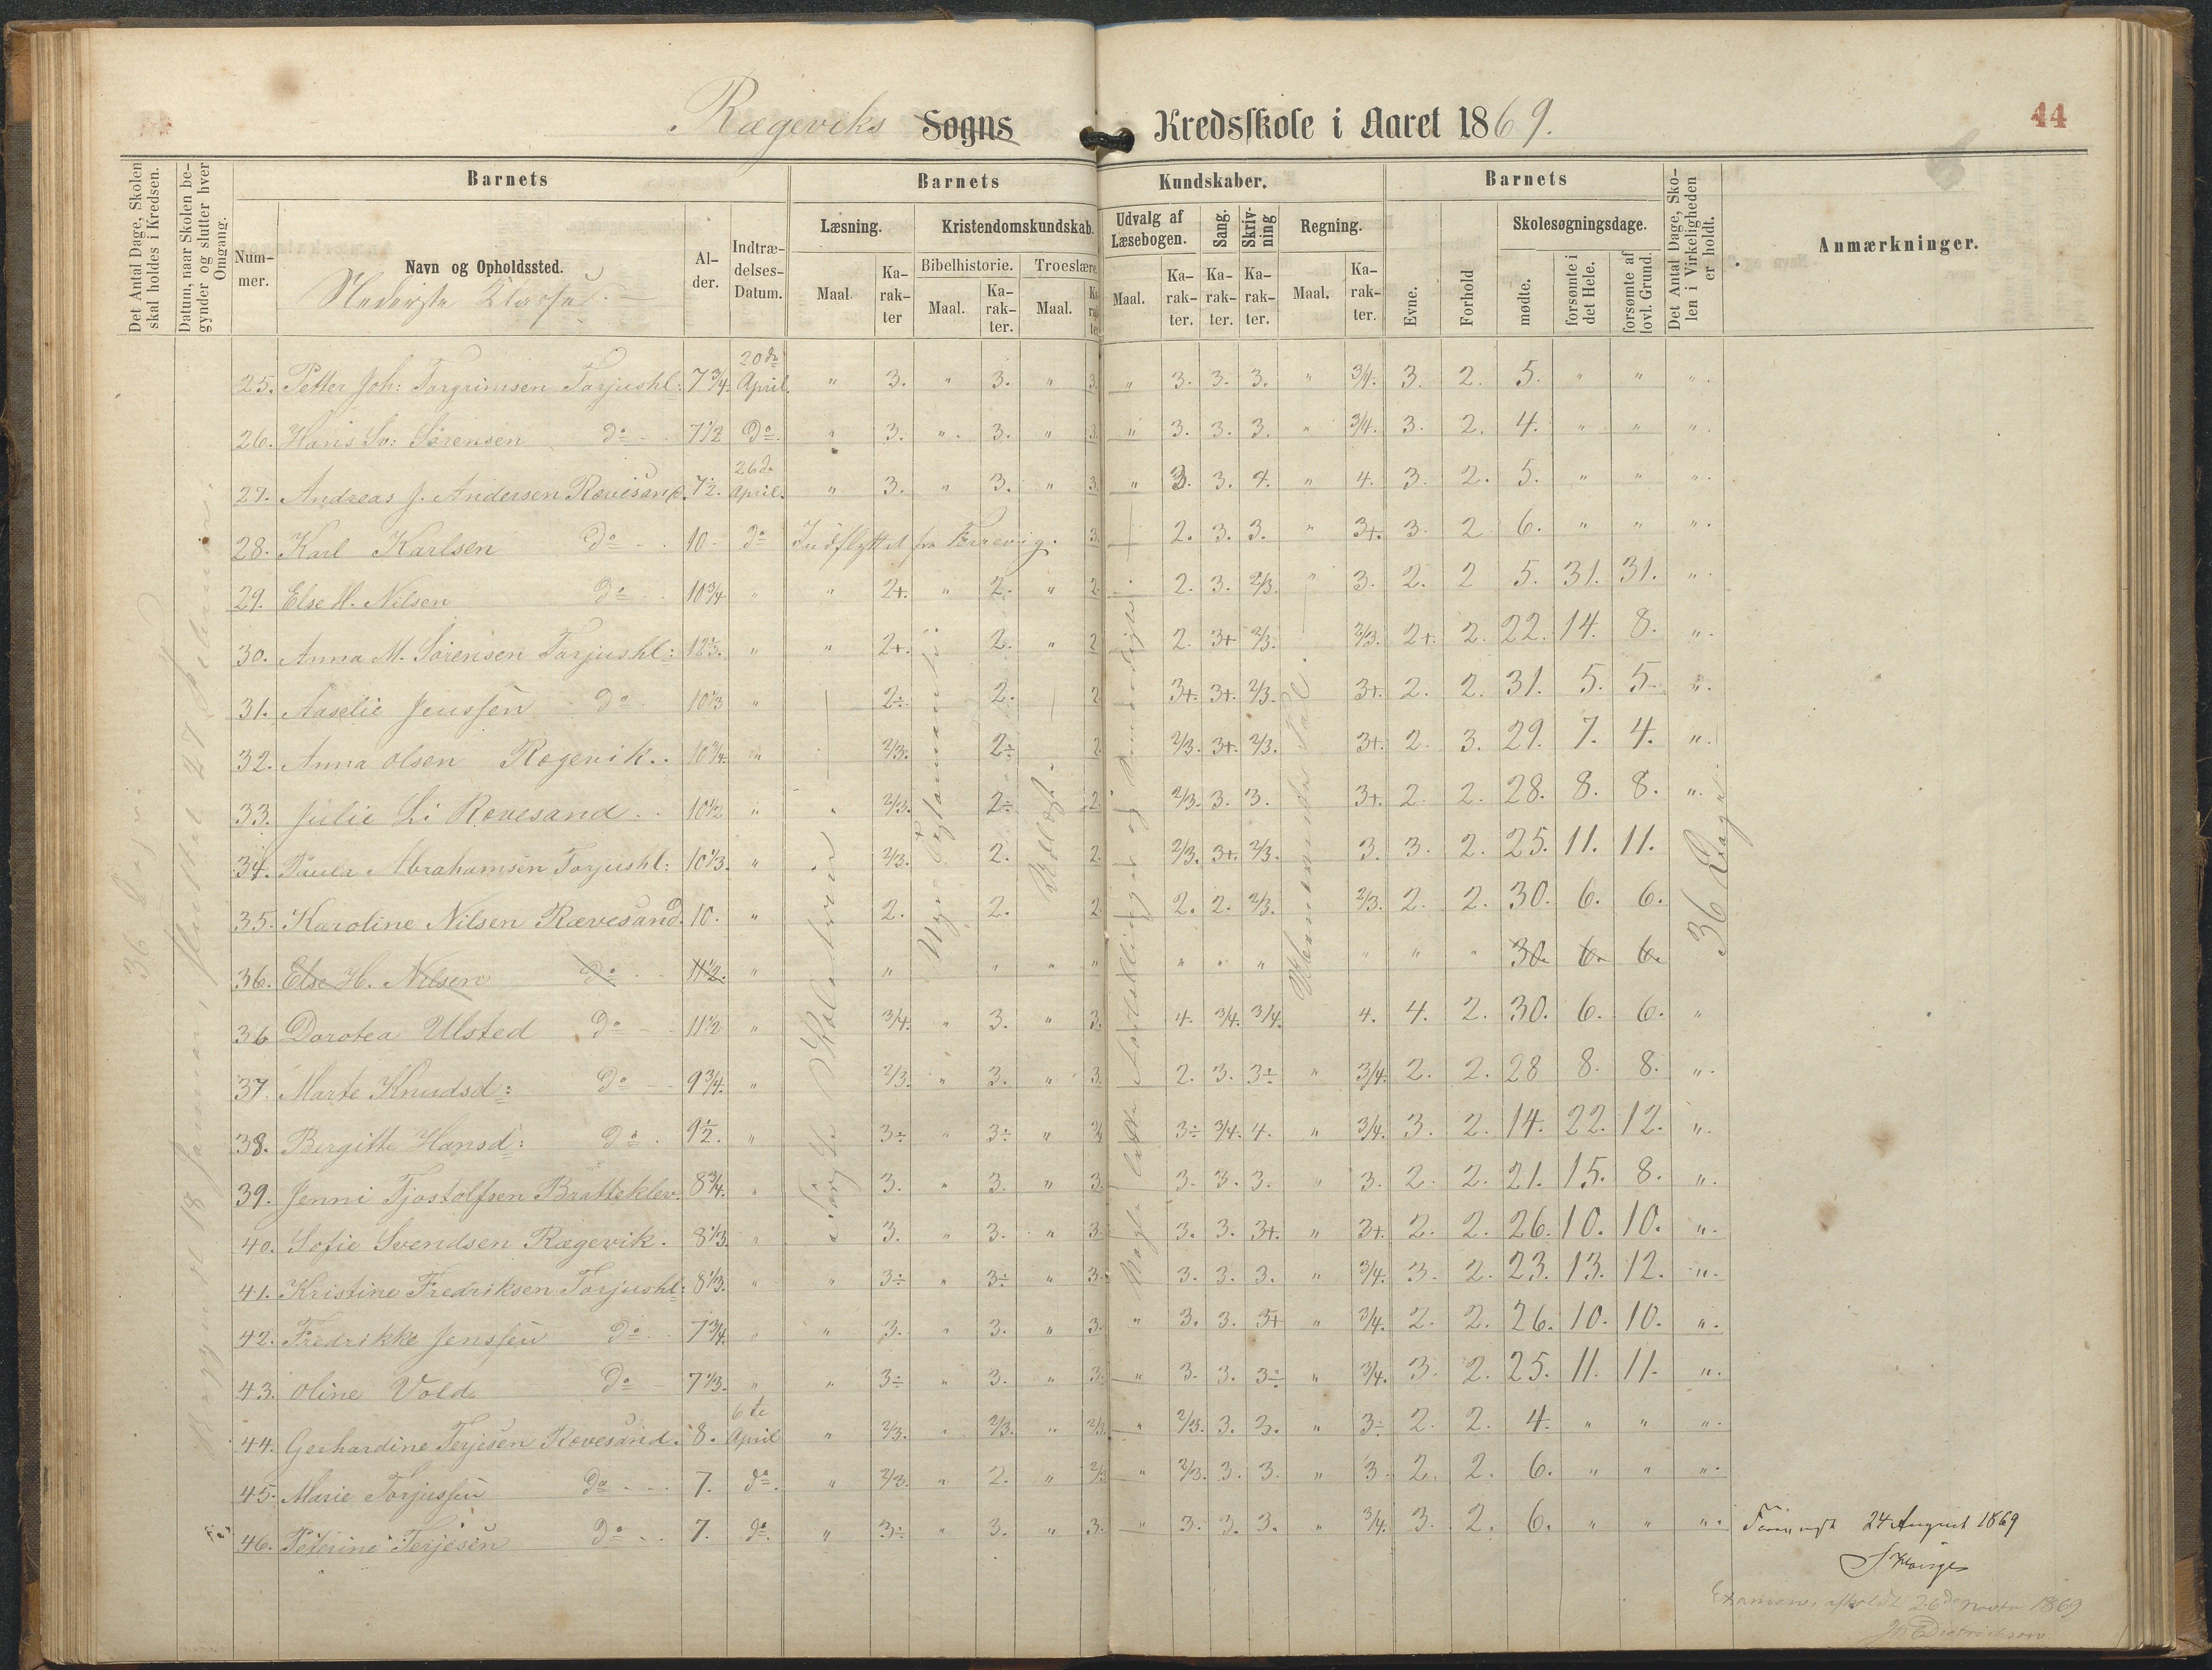 Rægeviks Sogns Kredsskole i Aaret 1869.
44
Det Antal Dage, Skolen skal holdes i Kredsen.
Datum, naar Skolen begynder og slutter hver Omgang.
Barnets
Barnets Kundskaber.
Barnets
Det Antal Dage, Skolen i Virkeligheden er holdt.
Anmærkninger.
Nummer.
Navn og Opholdssted.
Nederste Klasse.
Alder.
Indtrædelses-Datum.
Læsning.
Kristendomskundskab.
Udvalg af Læsebogen.
Sang.
Skrivning
Regning.
Evne.
Forhold
Skolesøgningsdage.
Bibelhistorie.
Troeslære
Maal.
Karakter
Maal.
Karakter.
Maal.
Karakter
Maal.
Karakter.
Karakter.
Karakter.
Maal.
Karakter.
mødte.
forsømte i det Hele.
forsømte af lovl. Grund.
25. Petter Joh: Torgrimsen Torjushl: 7 3/4. 20de April. " 3. " 3. " 3. " 3. 3. 3. " 3/4. 3. 2. 5. " " "
26. Hans Sv: Sørensen do 7 1/2 do " 3. " 3. " 3. " 3. 3. 3. " 3/4. 3. 2. 4. " " "
27. Andreas J. Andersen Rævesand. 7 1/2. 26de April. " 3. " 3. " 3. " 3. 3. 4. " 4. 3. 2. 5. " " "
28. Karl Karlsen do 10 do Indflyttet fra Færevig. 3. 2. 3. 3. " 3+. 3. 2 6. " " "
29. Else H. Nilsen do 10 3/4 " " 2+. " 2. " 2. 2. 3. 2/3. " 3. 2. 2 5. 31. 31. "
30. Anna M. Sørensen Torjushl: 12 1/3. " " 2+. 2. " 2 2. 3+ 2/3. 2/3. 2+. 2. 22. 14. 8. "
31. Aaselie Jenssen do 10 1/3 " 2÷ 2. 2 3+. 3+. 2/3. 3+. 2. 2. 31. 5. 5 "
32. Anna Olsen Rægevik. 10 3/4. " 2/3. 2÷ 2. 2/3. 3+. 2/3. 3+. 2. 3. 29. 7. 4. "
33. Julie Li Rævesand. 10 1/2 " 2/3. 2÷ 2. 2/3. 3. 3. 3+. 2. 2. 28. 8. 8. "
34. Paula Abrahamsen Torjushl: 10 1/3. " 2/3. 2. 2. 2/3. 3+. 2/3. 3. 3. 2. 25. 11. 11.
35. Karoline Nilsen Rævesand. 10. " 2. 2. 2. 2. 2. 2/3. 2/3. 2. 2. 30. 6. 6.
36. Else H. Nilsen do 11 1/2. " " " " " " " " " " " 30. 6. 6.
36 Dorotea Ulsted do 11 1/2 " 3/4. " 3. " 3. 4. 3/4. 3/4. 4. 4. 2. 30. 6. 6. "
37. Marte Knudsd: do 9 3/4. " 2/3. " 3. " 3. 2. 3. 3÷ " 3/4. 2. 2. 28 8. 8. "
38. Bergitte Hansd: do 9 1/2. " 3÷ " 3÷ " 3/4 3÷ 3/4. 4. " 3/4. 3. 2. 14. 22. 12. "
39. Jenni Tjostolfsen Bratteklev. 8 3/4. " 3. " 3. " 3. 3. 3. 3. " 3. 2. 2. 21. 15. 8. "
40. Sofie Svendsen Rægevik. 8 1/3. " 3. " 3. " 3. 3. 3. 3+. " 3+. 2. 2. 26. 10. 10. "
41. Kristine Fredriksen Torjushl: 8 1/3. " " 3÷ " 3÷ " 3. 3. 3. 3. " 3/4. 3. 2. 23. 13. 12. "
42. Fredrikke Jenssen do 7 3/4. " " 3. " 3. " 3. " 3. 3. 3+ " 3/4. 2. 2. 26. 10. 10. "
43. Oline Vold do 7 1/3. " " 3÷ " 3. " 3. " 3. 3. 3÷ " 3/4. 3. 2. 25. 11. 11. "
44. Gerhardine Terjesen Rævesand. 8. 6te April " 2/3. " 2/3. " 2/3. " 2/3. 3. 3. " 3÷ 2. 2. 4. " " "
45. Marie Torjussen do 7. do " 2/3. " 2. " 2/3 " 2/3. 3. 3. " 3. 2. 2. 6. " " "
46. Peterine Terjesen do 7. do " 3÷ " 3. " 3. " 3. 3. 3. " 3/4. 3. 2. 6. " " "
36 Dage
Begyndt 18 Januar, sluttet 27 Februar.
Nye Testamente
Utenad
36 Dage
24 August 1869
Examen afholdt 26de Novbr 1869